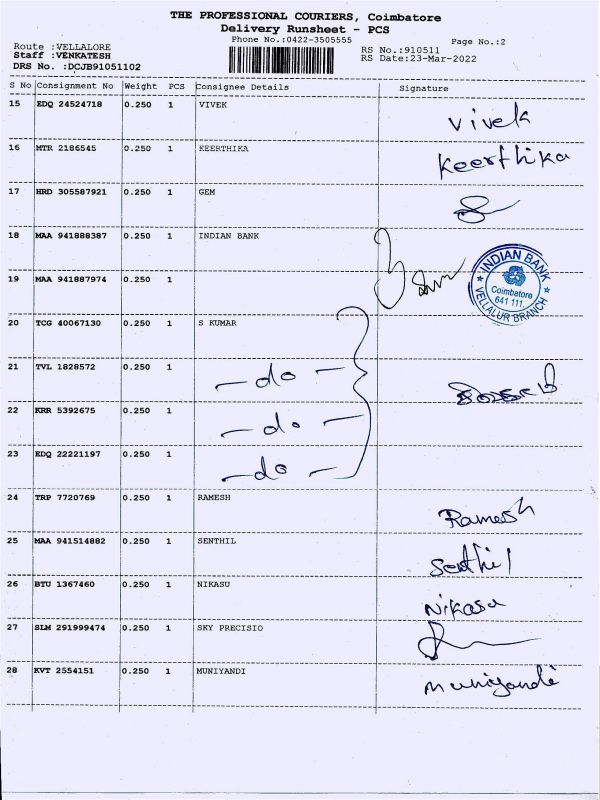 THE PROFESSIONAL COURIERS, Coimbatore
Delivery Runsheet - PCS
Phone No.:0422-3505555
Page No.:2
Route :VELLALORE
RS No.:910511
Staff :VENKATESH
RS Date:23-Mar-2022
DRS No. :DCJB91051102
S No Consignment No Weight PCS Consignee Details Signature
15 EDQ 24524718 0.250 1 VIVEK Vivek
16 MTR 2186545 0.250 1 KEERTHIKA Keerthika
17 HRD 305587921 0.250 1 GEM
18 MAA 941888387 0.250 1 INDIAN BANK
INDIAN BANK
Coimbatore
641 111.
VELLALUR BRANCH
19 MAA 941887974 0.250 1
20 TCG 40067130 0.250 1 S KUMAR
21 TVL 1828572 0.250 1 — do —
22 KRR 5392675 0.250 1 — do —
23 EDQ 22221197 0.250 1 — do —
24 TRP 7720769 0.250 1 RAMESH Ramesh
25 MAA 941514882 0.250 1 SENTHIL Senthil
26 BTU 1367460 0.250 1 NIKASU Nikasu
27 SLM 291999474 0.250 1 SKY PRECISIO
28 KVT 2554151 0.250 1 MUNIYANDI Muniyandi